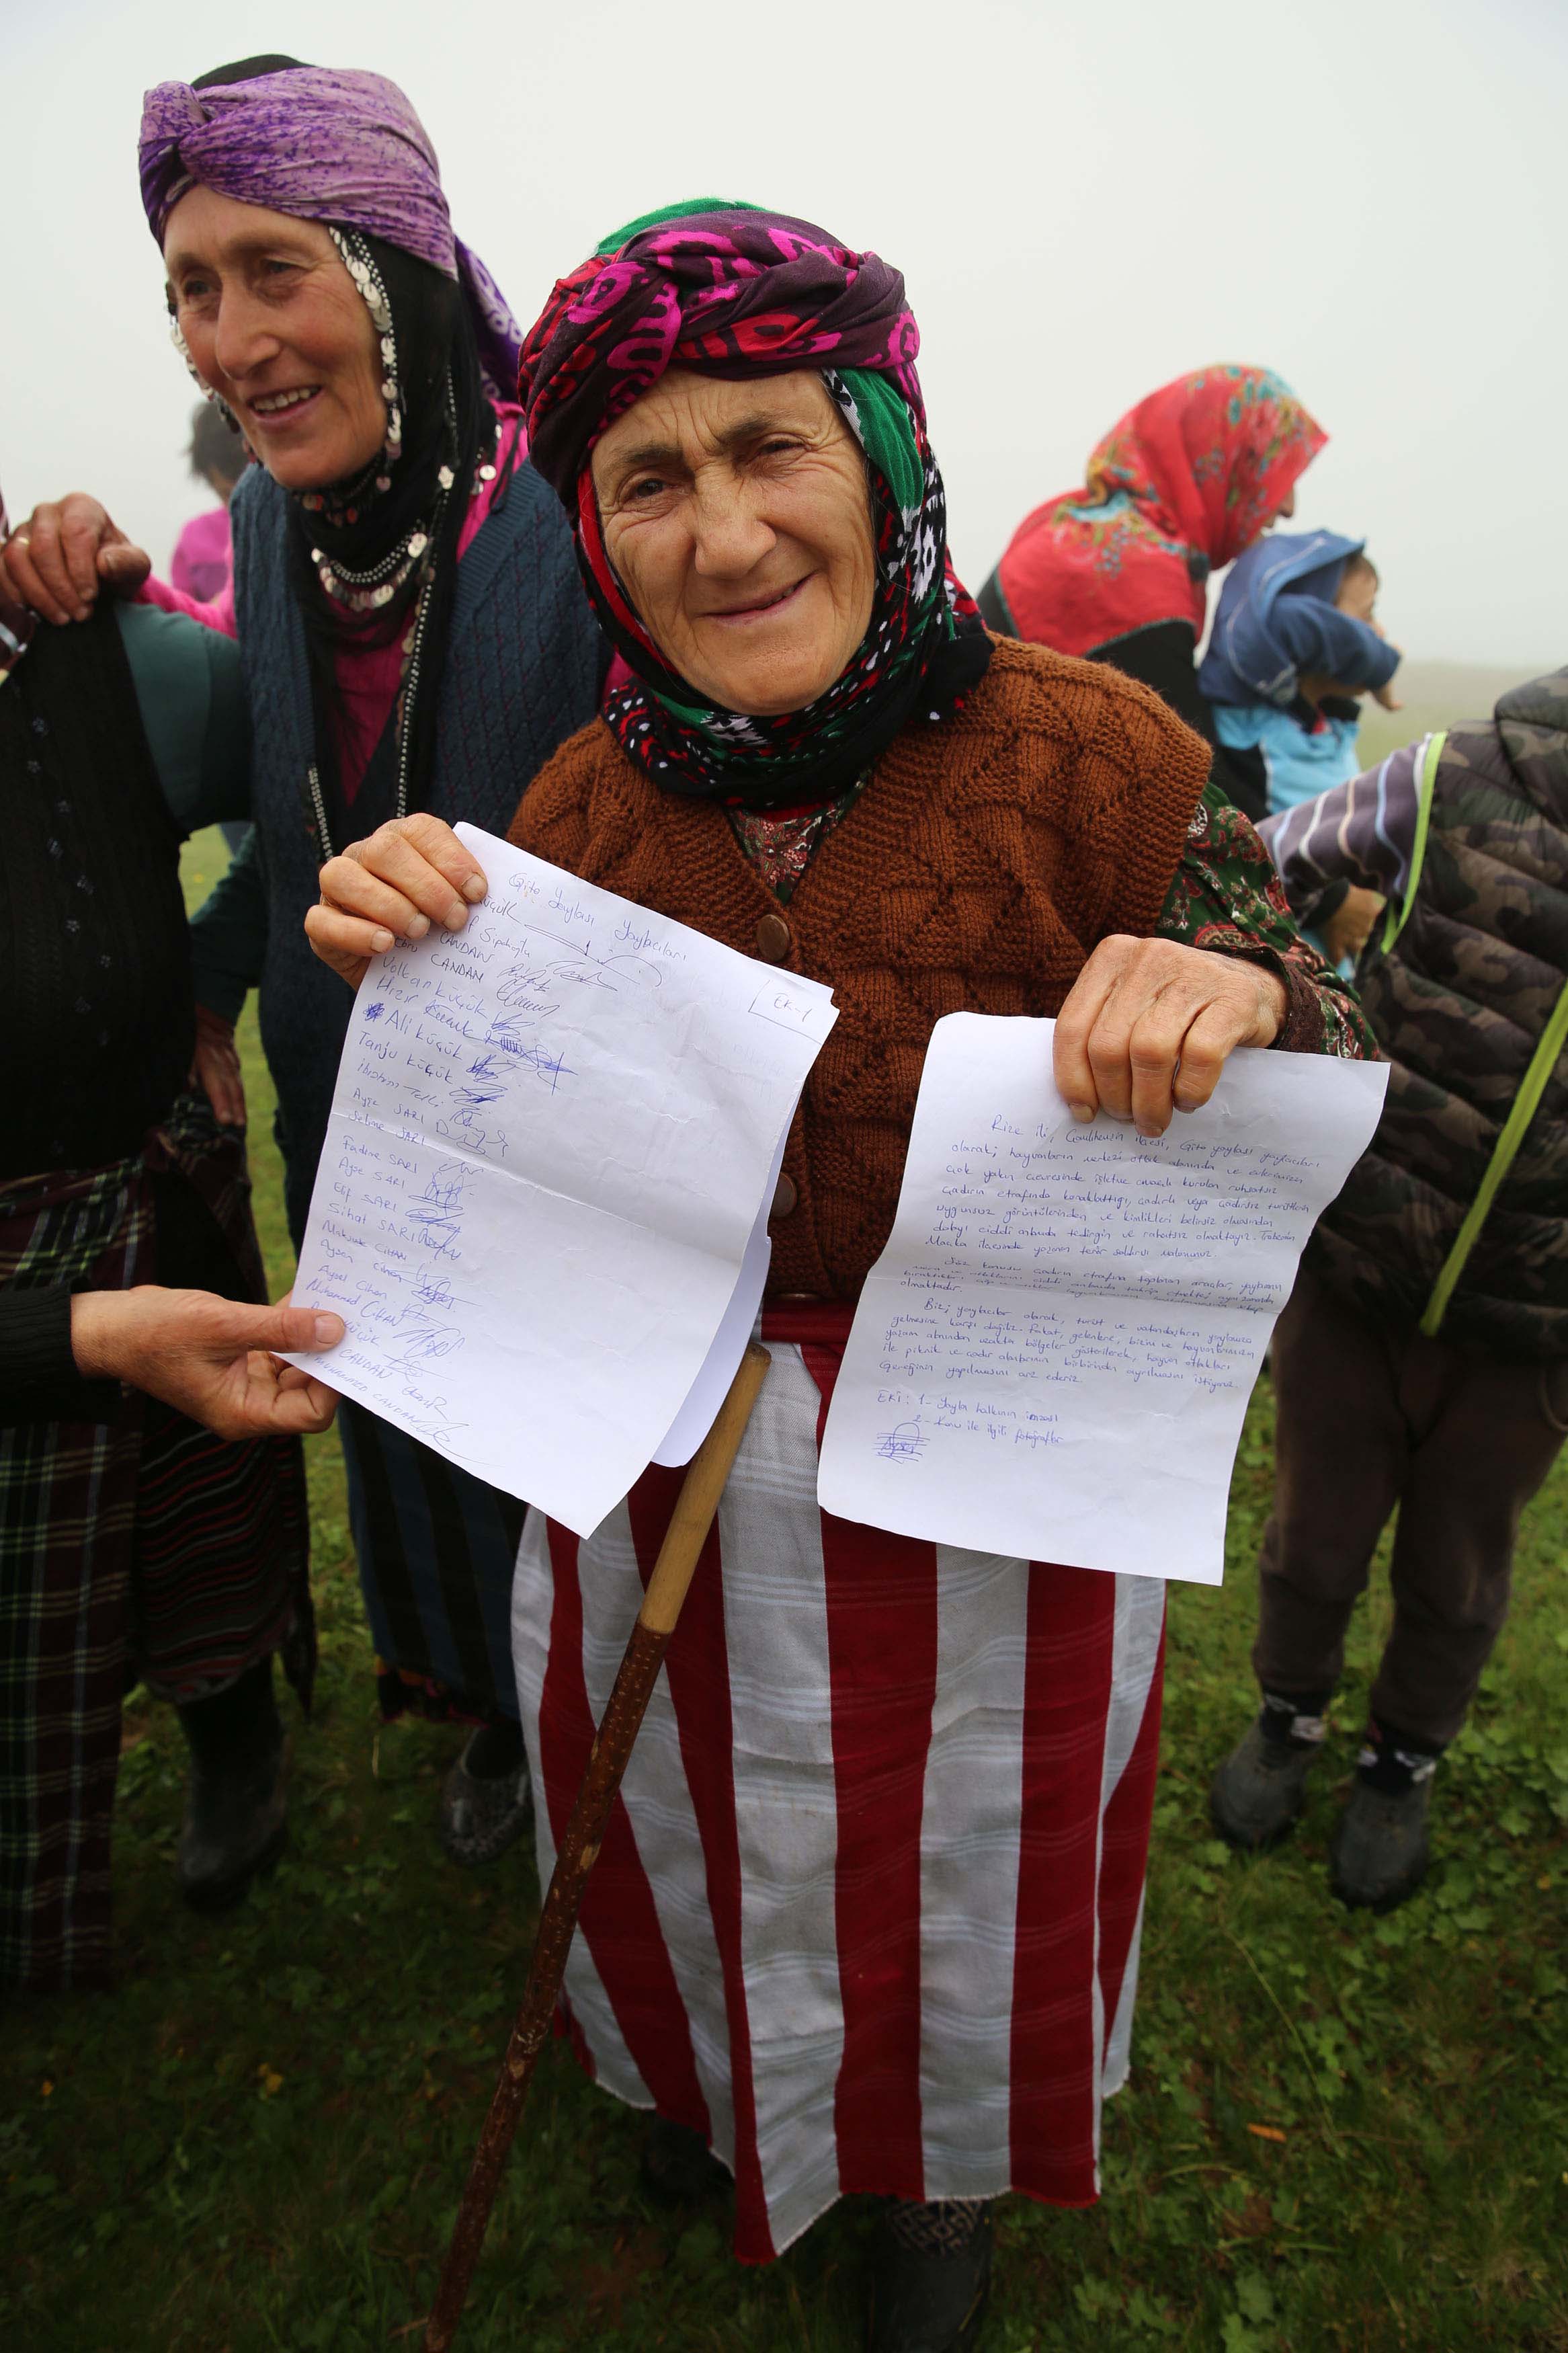 Gito Yaylası Yaylacıları
EK-1
küçük
Sipahioğlu
CANDAN
Ebru CANDAN
Volkan küçük
Hızır küçük
Ali küçük
Tanju küçük
İbrahim Telli
Ayşe SARI
Selime SARI
Fadime SARI
Ayşe SARI
Elif SARI
Nihat SARI
CİHAN
Aysen Cihan
Aysel Cihan
Muhammed CİHAN
küçük
CANDAN
MUHAMMED CANDAN
Rize ili, Çamlıhemşin ilçesi, Gito yaylası yaylacıları
olarak; hayvanların merkezi otlak alanında ve evlerimizin
çok yakın çevresinde işletme amaçlı kurulan ruhsatsız
çadırın etrafında konaklattığı, çadırlı veya çadırsız turistlerin
uygunsuz görüntülerinden ve kimlikleri belirsiz olmasından
dolayı ciddi anlamda tedirgin ve rahatsız olmaktayız. Trabzonun
Maçka ilçesinde yaşanan terör saldırısı malumunuz.
Söz konusu çadırın etrafına toplanan araçlar, yaylanın
olmaktadır.
Biz; yaylacılar olarak, turist ve vatandaşların yaylamıza
gelmesine karşı değiliz. Fakat, gelenlere, bizim ve hayvanlarımızın
yaşam alanından uzakta bölgeler gösterilerek, hayvan otlakları
ile piknik ve çadır alanlarının birbirinden ayrılmasını istiyoruz.
Gereğinin yapılmasını arz ederiz.
EKİ: 1- Yayla halkının imzası
2- Konu ile ilgili fotoğraflar